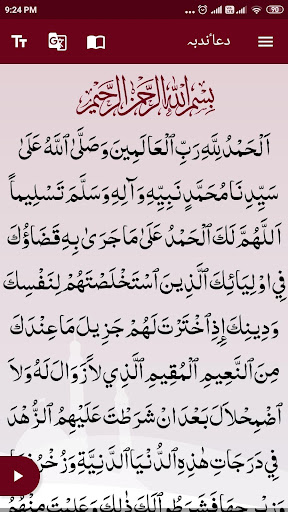 9:24 PM
دعاٴندبہ
بِسْمِ اللهِ الرَّحْمٰنِ الرَّحِيْمِ
اَلْحَمْدُ لِلّٰهِ رَبِّ ٱلْعَالَمِينَ وَصَلَّىٰ ٱللَّهُ عَلَىٰ
سَيِّدِنَا مُحَمَّدٍ نَبِيِّهِ وَآلِهِ وَسَلَّمَ تَسْلِيماً
اَللَّهُمَّ لَكَ ٱلْحَمْدُ عَلَىٰ مَا جَرَىٰ بِهِ قَضَاؤُكَ
فِي اوْلِيَائِكَ ٱلَّذِينَ ٱسْتَخْلَصْتَهُمْ لِنَفْسِكَ
وَدِينِكَ إِذِ ٱخْتَرْتَ لَهُمْ جَزِيلَ مَا عِنْدَكَ
مِنَ ٱلنَّعِيمِ ٱلْمُقِيمِ ٱلَّذِي لاَ زَوَالَ لَهُ وَلاَ
ٱضْمِحْلاَلَ بَعْدَ انْ شَرَطْتَ عَلَيْهِمُ ٱلزُّهْدَ
فِي دَرَجَاتِ هٰذِهِ ٱلدُّنْيَا ٱلدَّنِيَّةِ وَزُخْرُفِهَا
وَزِبْرِجِهَا فَشَرَطُوٱ لَكَ ذٰلِكَ وَعَلِمْتَ مِنْهُمُ